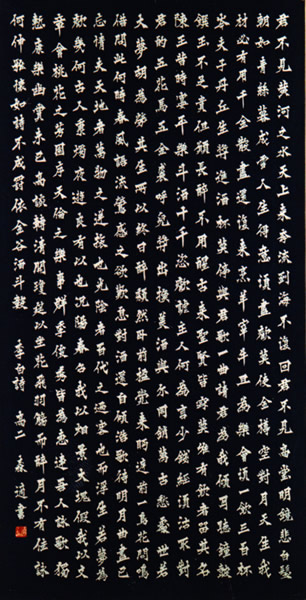 君不見黃河之水天上來奔流到海不復回君不見高堂明鏡悲白髮
朝如青絲暮成雪人生得意須盡歡莫使金樽空對月天生我
材必有用千金散盡還復來烹羊宰牛且為樂會須一飲三百杯
岑夫子丹丘生將進酒杯莫停與君歌一曲請君為我傾耳聽鐘鼓
饌玉不足貴但願長醉不用醒古來聖賢皆寂寞惟有飲者留其名
陳王昔時宴平樂斗酒十千恣歡謔主人何為言少錢徑須沽取對
君酌五花馬千金裘呼兒將出換美酒與爾同銷萬古愁處世若
大夢胡為勞其生所以終日醉頹然臥前楹覺來眄庭前一鳥花間鳴
借問此何時春風語流鶯感之欲歎息對酒還自傾浩歌待明月曲盡已
忘情夫天地者萬物之逆旅也光陰者百代之過客也而浮生若夢為
歡幾何古人秉燭夜遊良有以也況陽春召我以煙景大塊假我以文
章會桃花之芳園序天倫之樂事群季俊秀皆為惠連吾人詠歌獨
慚康樂幽賞未已高談轉清開瓊筵以坐花飛羽觴而醉月不有佳詠
何伸雅懷如詩不成罰依金谷酒斗數 李白詩